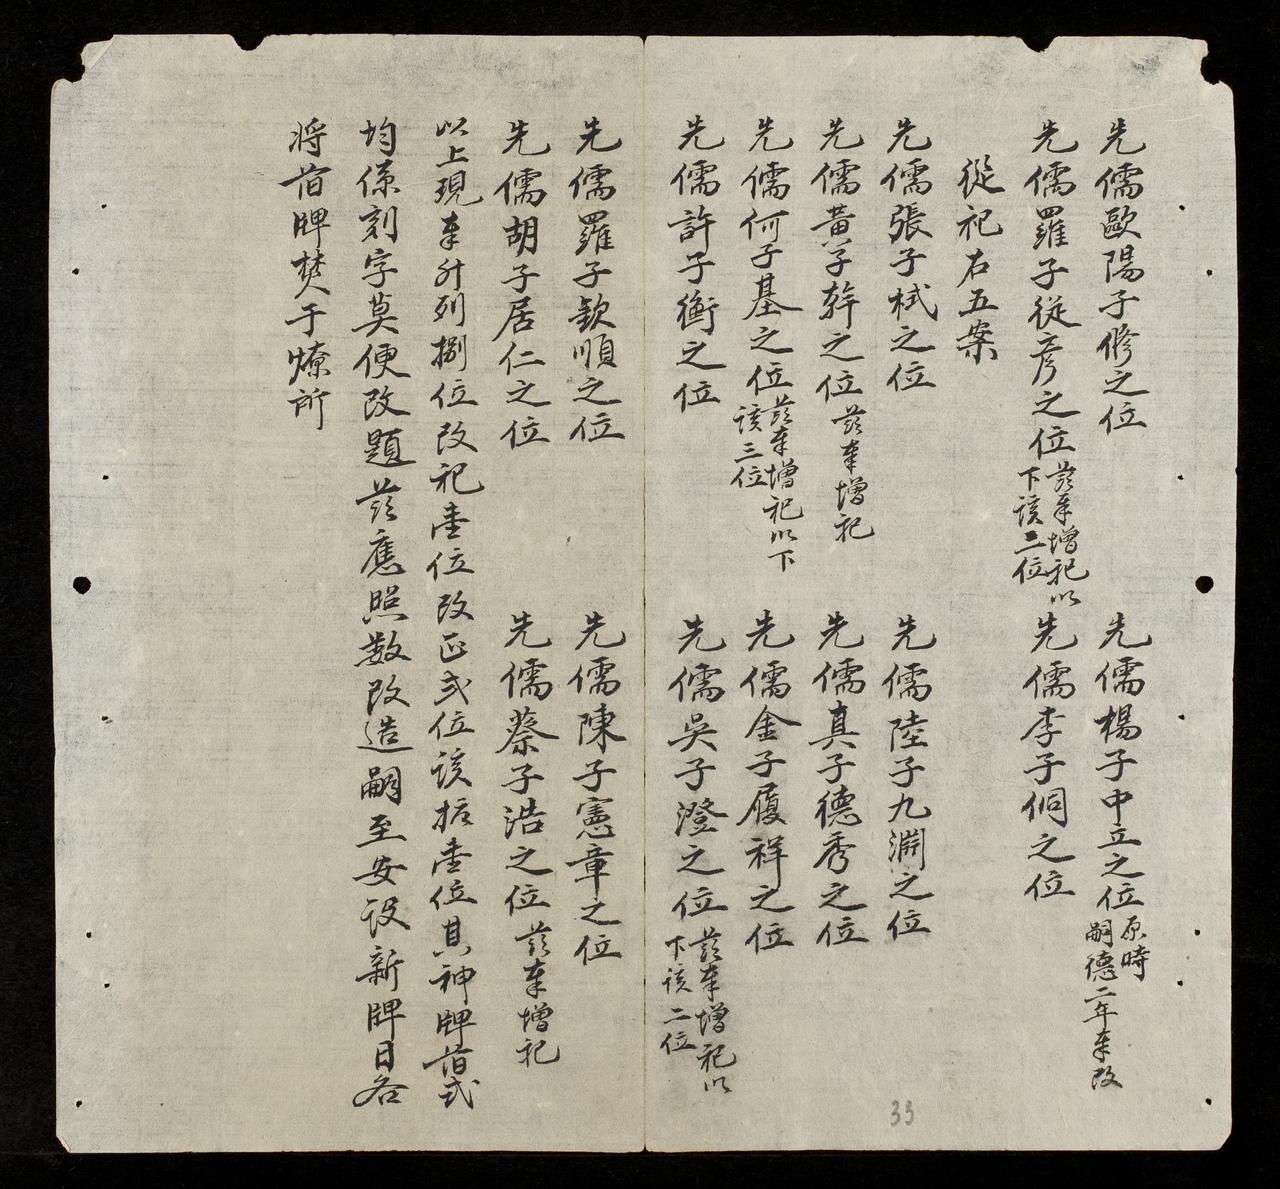 先儒歐陽子修之位　先儒楊子中立之位原時嗣德二年奉改
先儒羅子從彥之位茲奉增祀以下該二位　先儒李子侗之位
從祀右五案
先儒張子栻之位　先儒陸子九淵之位
先儒黃子幹之位茲奉增祀　先儒真子德秀之位
先儒何子基之位茲奉增祀以下該三位　先儒金子履祥之位
先儒許子衡之位　先儒吳子澄之位茲奉增祀以下該二位
先儒羅子欽順之位　先儒陳子憲章之位
先儒胡子居仁之位　先儒蔡子浩之位茲奉增祀
以上現奉升列捌位改祀壹位改正弍位該拡壹位其神牌旧式
均係刻字莫便改題茲應照数改造嗣至安設新牌日各
将旧牌焚于燎所
33